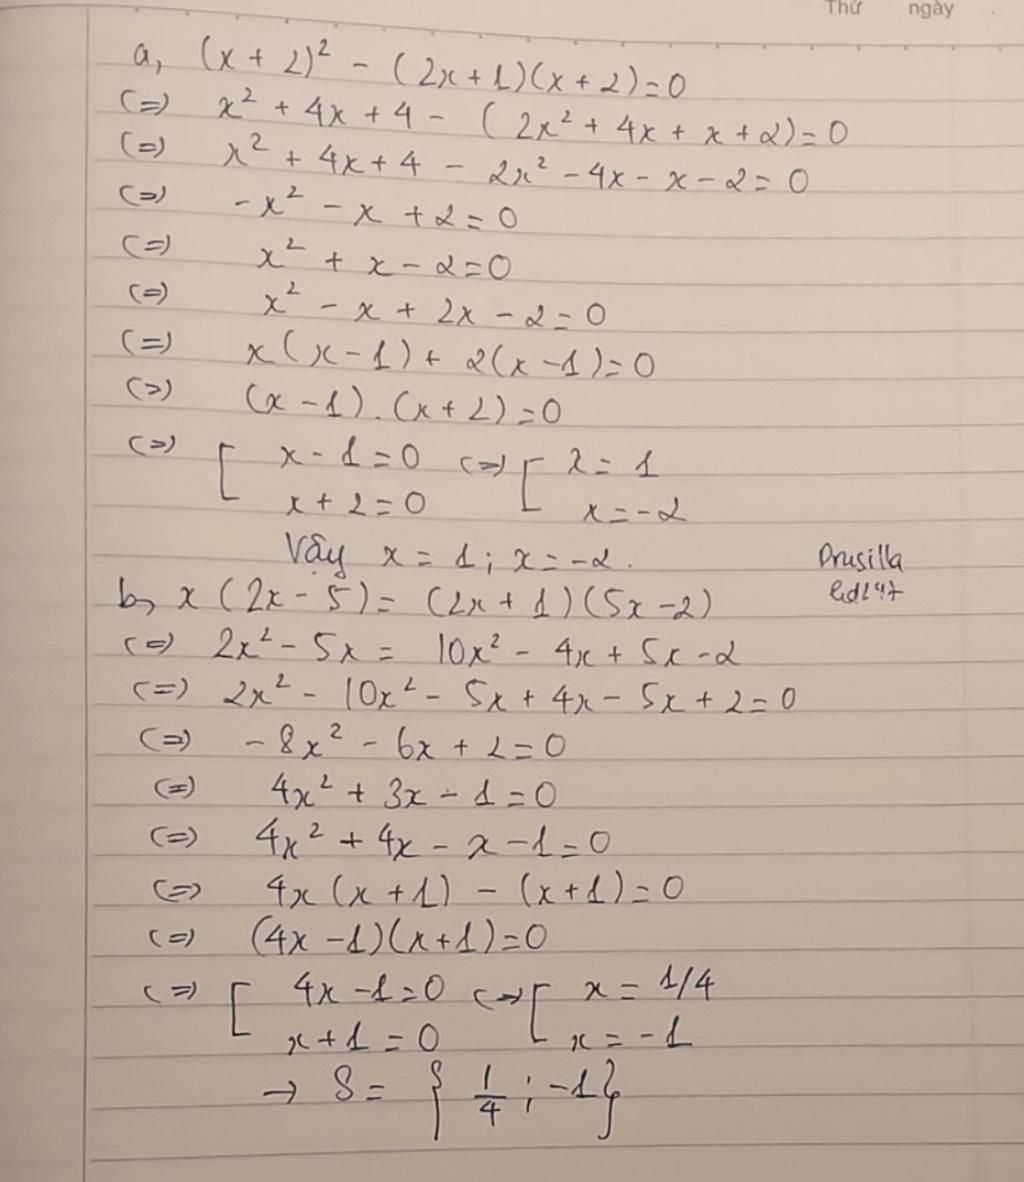 Thứ ngày
a, (x + 2)² - (2x + 1)(x + 2) = 0
(=) x² + 4x + 4 - (2x² + 4x + x + 2) = 0
(=) x² + 4x + 4 - 2x² - 4x - x - 2 = 0
(=) -x² - x + 2 = 0
(=) x² + x - 2 = 0
(=) x² - x + 2x - 2 = 0
(=) x(x - 1) + 2(x - 1) = 0
(=) (x - 1).(x + 2) = 0
(=) [ x - 1 = 0 (=) [ x = 1
x + 2 = 0 x = -2
Vậy x = 1 ; x = -2.
Prusilla
b, x(2x - 5) = (2x + 1)(5x - 2)
(=) 2x² - 5x = 10x² - 4x + 5x - 2
(=) 2x² - 10x² - 5x + 4x - 5x + 2 = 0
(=) -8x² - 6x + 2 = 0
(=) 4x² + 3x - 1 = 0
(=) 4x² + 4x - x - 1 = 0
(=) 4x(x + 1) - (x + 1) = 0
(=) (4x - 1)(x + 1) = 0
(=) [ 4x - 1 = 0 (=) [ x = 1/4
x + 1 = 0 x = -1
→ S = { 1/4 ; -1 }